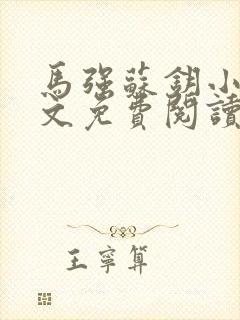 馬強蘇鈅小
文免費閱讀
王寧算